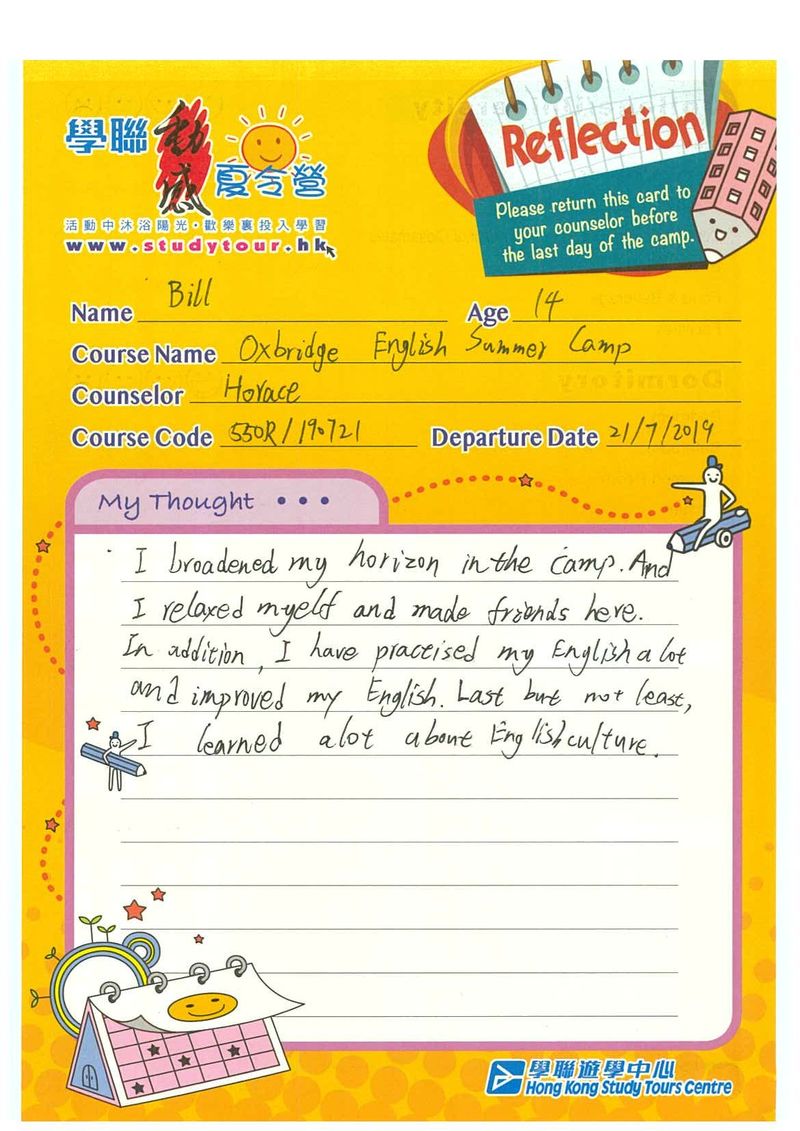 學聯動感夏令營
活動中沐浴陽光・歡樂裏投入學習
www.studytour.hk
Reflection
Please return this card to
your counselor before
the last day of the camp.
Name Bill Age 14
Course Name Oxbridge English Summer Camp
Counselor Horace
Course Code 550R/190721 Departure Date 21/7/2019
My Thought • • •
I broadened my horizon in the camp. And
I relaxed myelf and made friends here.
In addition, I have practised my English a lot
and improved my English. Last but not least,
I learned alot about English culture.
學聯遊學中心
Hong Kong Study Tours Centre